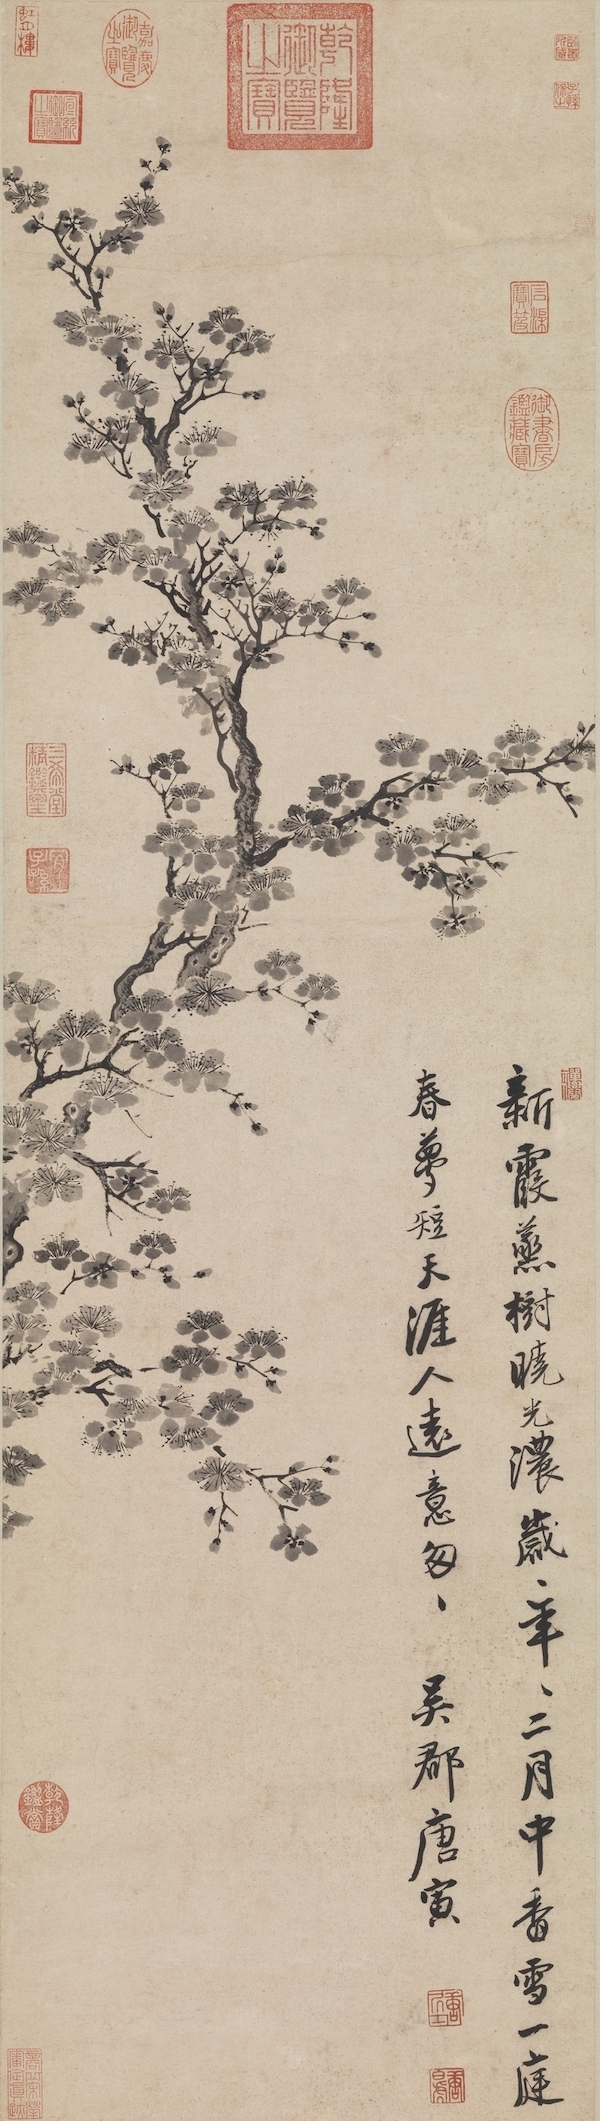 乾隆御覽之寶
嘉慶御覽之寶
宣統御覽之寶
石渠寶笈
御書房鑑藏寶
三希堂精鑑璽
宜子孫
新霞蒸樹曉光濃歲、年、二月中香雪一庭
春夢短天涯人遠意匆、 吳郡唐寅
乾隆鑑賞